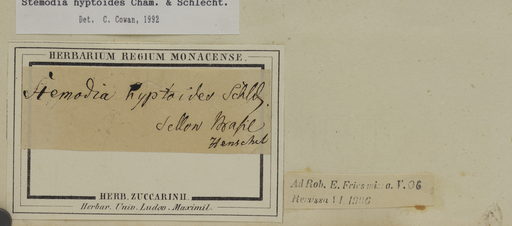 Stemodia hyptoides Cham. & Schlecht.
Det. C. Cowan, 1992
HERBARIUM REGIUM MONACENSE.
Stemodia hyptoides Schld.
Sellow Brasil
Henschel
HERB. ZUCCARINII.
Herbar. Univ. Ludov. Maximil.
Ad Rob. E. Fries missa. V. 06
Remissa VI 1906